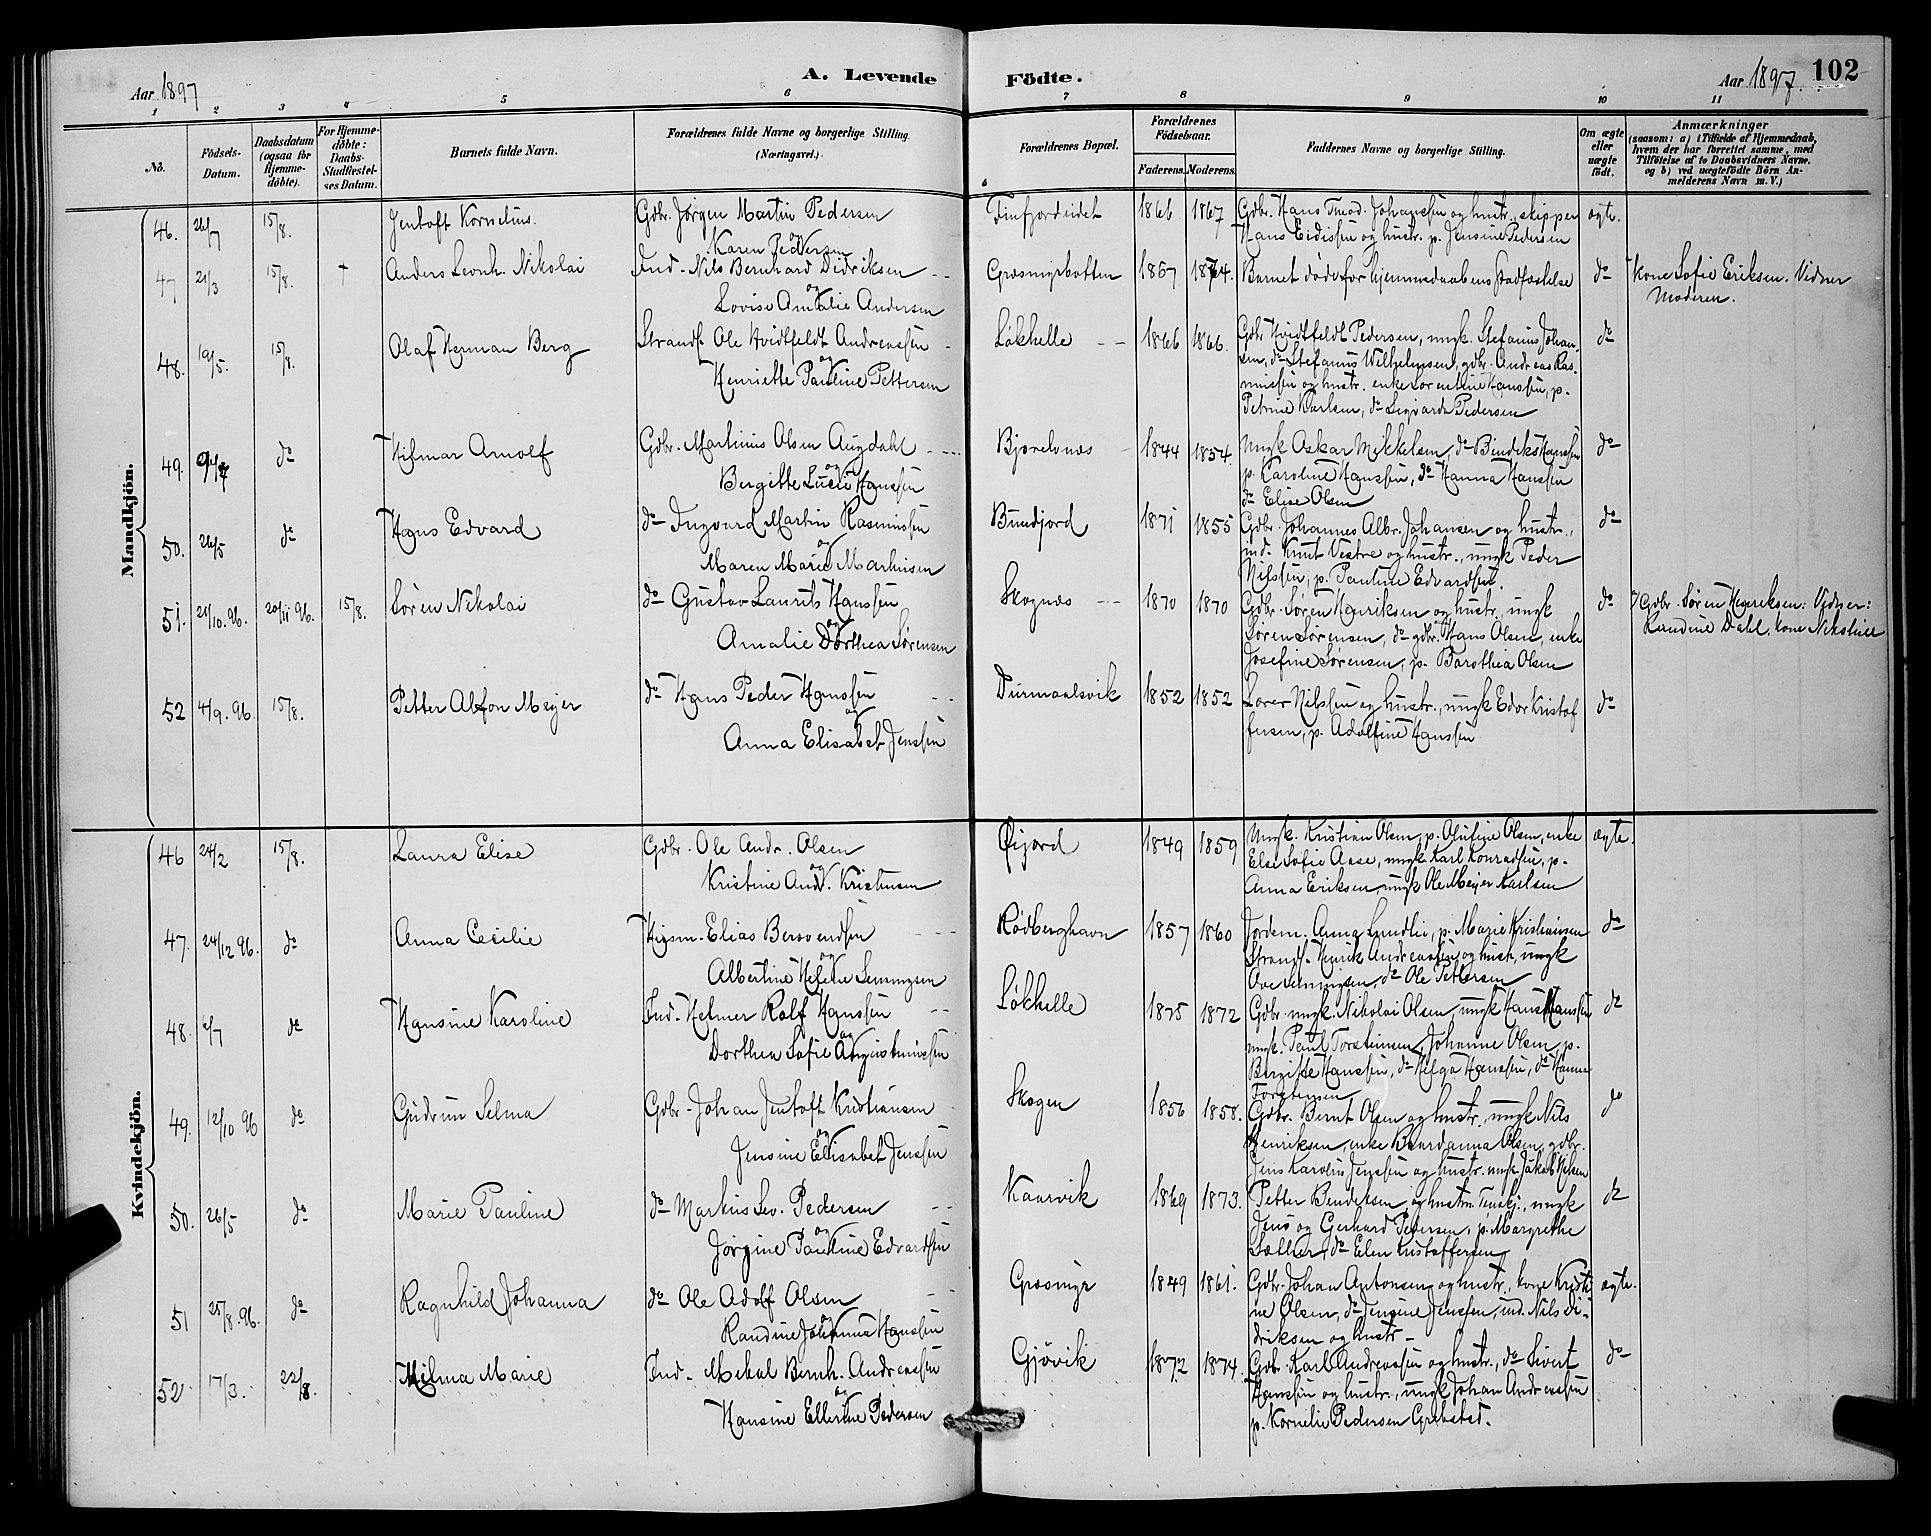 A. Levende Födte.
102
Aar 1897
Aar 1897
1 2 3 4 5 6 7 8 9 10 11
No.
Födsels-Datum.
Daabsdatum (ogsaa for Hjemme-döbte).
For Hjemme-döbte: Daabs-Stadfæstel-ses Datum.
Barnets fulde Navn.
Forældrenes fulde Navne og borgerlige Stilling. (Næringsvei.)
Forældrenes Bopæl.
Forældrenes Födselsaar.
Faderens. Moderens.
Faddernes Navne og borgerlige Stilling.
Om ægte eller uægte født.
Anmærkninger
(saasom: a) i Tilfælde af Hjemmedaab, hvem der har forrettet samme, med Tilföielse af to Daabsvidners Navne. og b) ved uægtefödte Börn An-melderens Navn m. V.)
Mandkjön.
46. 26/7 15/8. Jentoft Kornelius. Gdbr. Jørgen Martin Pedersen Finfjordeidet 1866 1867 Gdbr. Hans Theod. Johansen og hustr., skipper ægte.
og Karen Pedersen Hans Eidissen og hustr. p. Jensine Pedersen
47 21/3 15/8. + Anders Leonh. Nikolai Ind. Nils Bernhard Didriksen Græsmyrbotten 1867 1874. Barnet døde før hjemmedaabens stadfæstelse do Kone Sofie Eriksen. Vidner
og Lovise Amalie Andersen Moderen.
48. 19/5. 15/8. Olaf Herman Berg Strands. Ole Hvidtfeldt Andreassen Løkhelle 1866 1866. Gdbr Hvidtfeldt Pedersen, ungk. Stefanus Johan- do
sen, do Stefanus Wilhelmsen, gdbr. Andreas Ras-
og Henriette Pauline Pettersen mussen og hustr. enke Sorentine Hanssen, p.
Petrine Karlsen, do Sigvarda Pedersen
49. do Hilmar Arnolf Gdbr. Martinus Olsen Augdahl Bjørelvnes 1844 1854. Ungk Askar Mikkelsen, do Bendiks Hanssen do
og Bergitte Lucie Hanssen p. Karoline Hanssen, do Hanna Hanssen
do Elise Olsen
50. 26/5 do Hans Edvard do Ingvard Martin Rasmussen Bundjord 1871 1855 Gdbr. Johannes Albr. Johansen og hustr., do
og ind. Knut Vestre og hustr., ungk Peder
Maren Marie Martinsen Nilssen, p. Pauline Edvardsen.
51. 21/10.96. 20/11 96. 15/8. Søren Nikolai do Gustav Laurits Hanssen Skognæs 1870 1870 Gdbr. Søren Henriksen og hustr., ungk do Gdbr. Søren Henriksen: Vidner:
og Amalie Dorthea Sørensen Søren Sørensen, do gdbr. Hans Olsen, enke Randine Dahl, kone
Josefine Sørensen, p. Barothea Olsen
52 4/9.96. 15/8. Petter Alfon Meyer do Hans Peder Hanssen Durmaalsvik 1852 1852 Nilssen og hustr., ungk Edor Kristof do
og Anna Elisabet Jenssen fersen, p. Adolfine Hanssen
Kvindekjön.
46 24/2 15/8. Laura Elise Gdbr. Ole Andr. Olsen Øijord 1849 1859 Ungk. Kristian Olsen, p. Olufine Olsen, enke ægte.
og Kristine And. Kristensen Else Sofie Aase, ungk Karl Konradsen, p.
Anna Eriksen, ungk Ole Meyer Karlsen
47. 24/12 96. do Anna Cecilie Husm. Elias Berovendsen Rødberghavn 1857 1860 Jordem. Anna Lundlie, p. Marie Kristiansen do
og Albertine Helene Lemmingsen Strands. Henrik Andreassen og hustr., ungk
do Ole Pettersen
48. 6/7 do Hansine Karoline Ind. Helmer Rolf Hanssen Løkhelle 1875 1872 Gdbr. ungk. Nikolai Olsen, ungk Hans Hanssen do
og Dorthea Sofie Augustinussen ungk. Paul Torsteinsen, Johanne Olsen, p.
Bergitte Hanssen, do Helga Hanssen, do Hanna
Torstensen
49. 12/10 96 do Gudrun Selma Gdbr. Johan Jentoft Kristiansen Skogen 1856 1858. Gdbr. Bernt Olsen og hustr., ungk Nils do
og Jensine Elisabet Jenssen Henriksen, enke Olsen, gdbr.
Jens Karolius Jenssen og hustr. ungk Jakob Nilsen
50. 26/5 do Marie Pauline do Markus Sev. Pedersen Kaarvik 1869 1873. Petter Bendiksen og hustr. ungk do
og Jørgine Pauline Edvardsen Jens og Gerhard Pedersen, p. Margrethe
Sæther, do Elen Kristoffersen
51 25/8.96. do Ragnhild Johanna do Ole Adolf Olsen Græsmyr 1849 1861. Gdbr. Johan Antonsen og hustr., kone Kristi- ægte.
og Randine Johanna Hanssen ne Olsen, do Jensine Jenssen, ind. Nils Di-
driksen og hustr.
52 17/3. 22/8. Hilma Marie Ind. Mekal Bernh. Andreassen Gjøvik 1872 1874. Gdbr. Karl Andreassen og hustr., do Sivert do
og Hansine Ellertine Pedersen Hanssen og hustr., ungk Johan Andreassen
p. Kornelie Pedersen Grebstad.